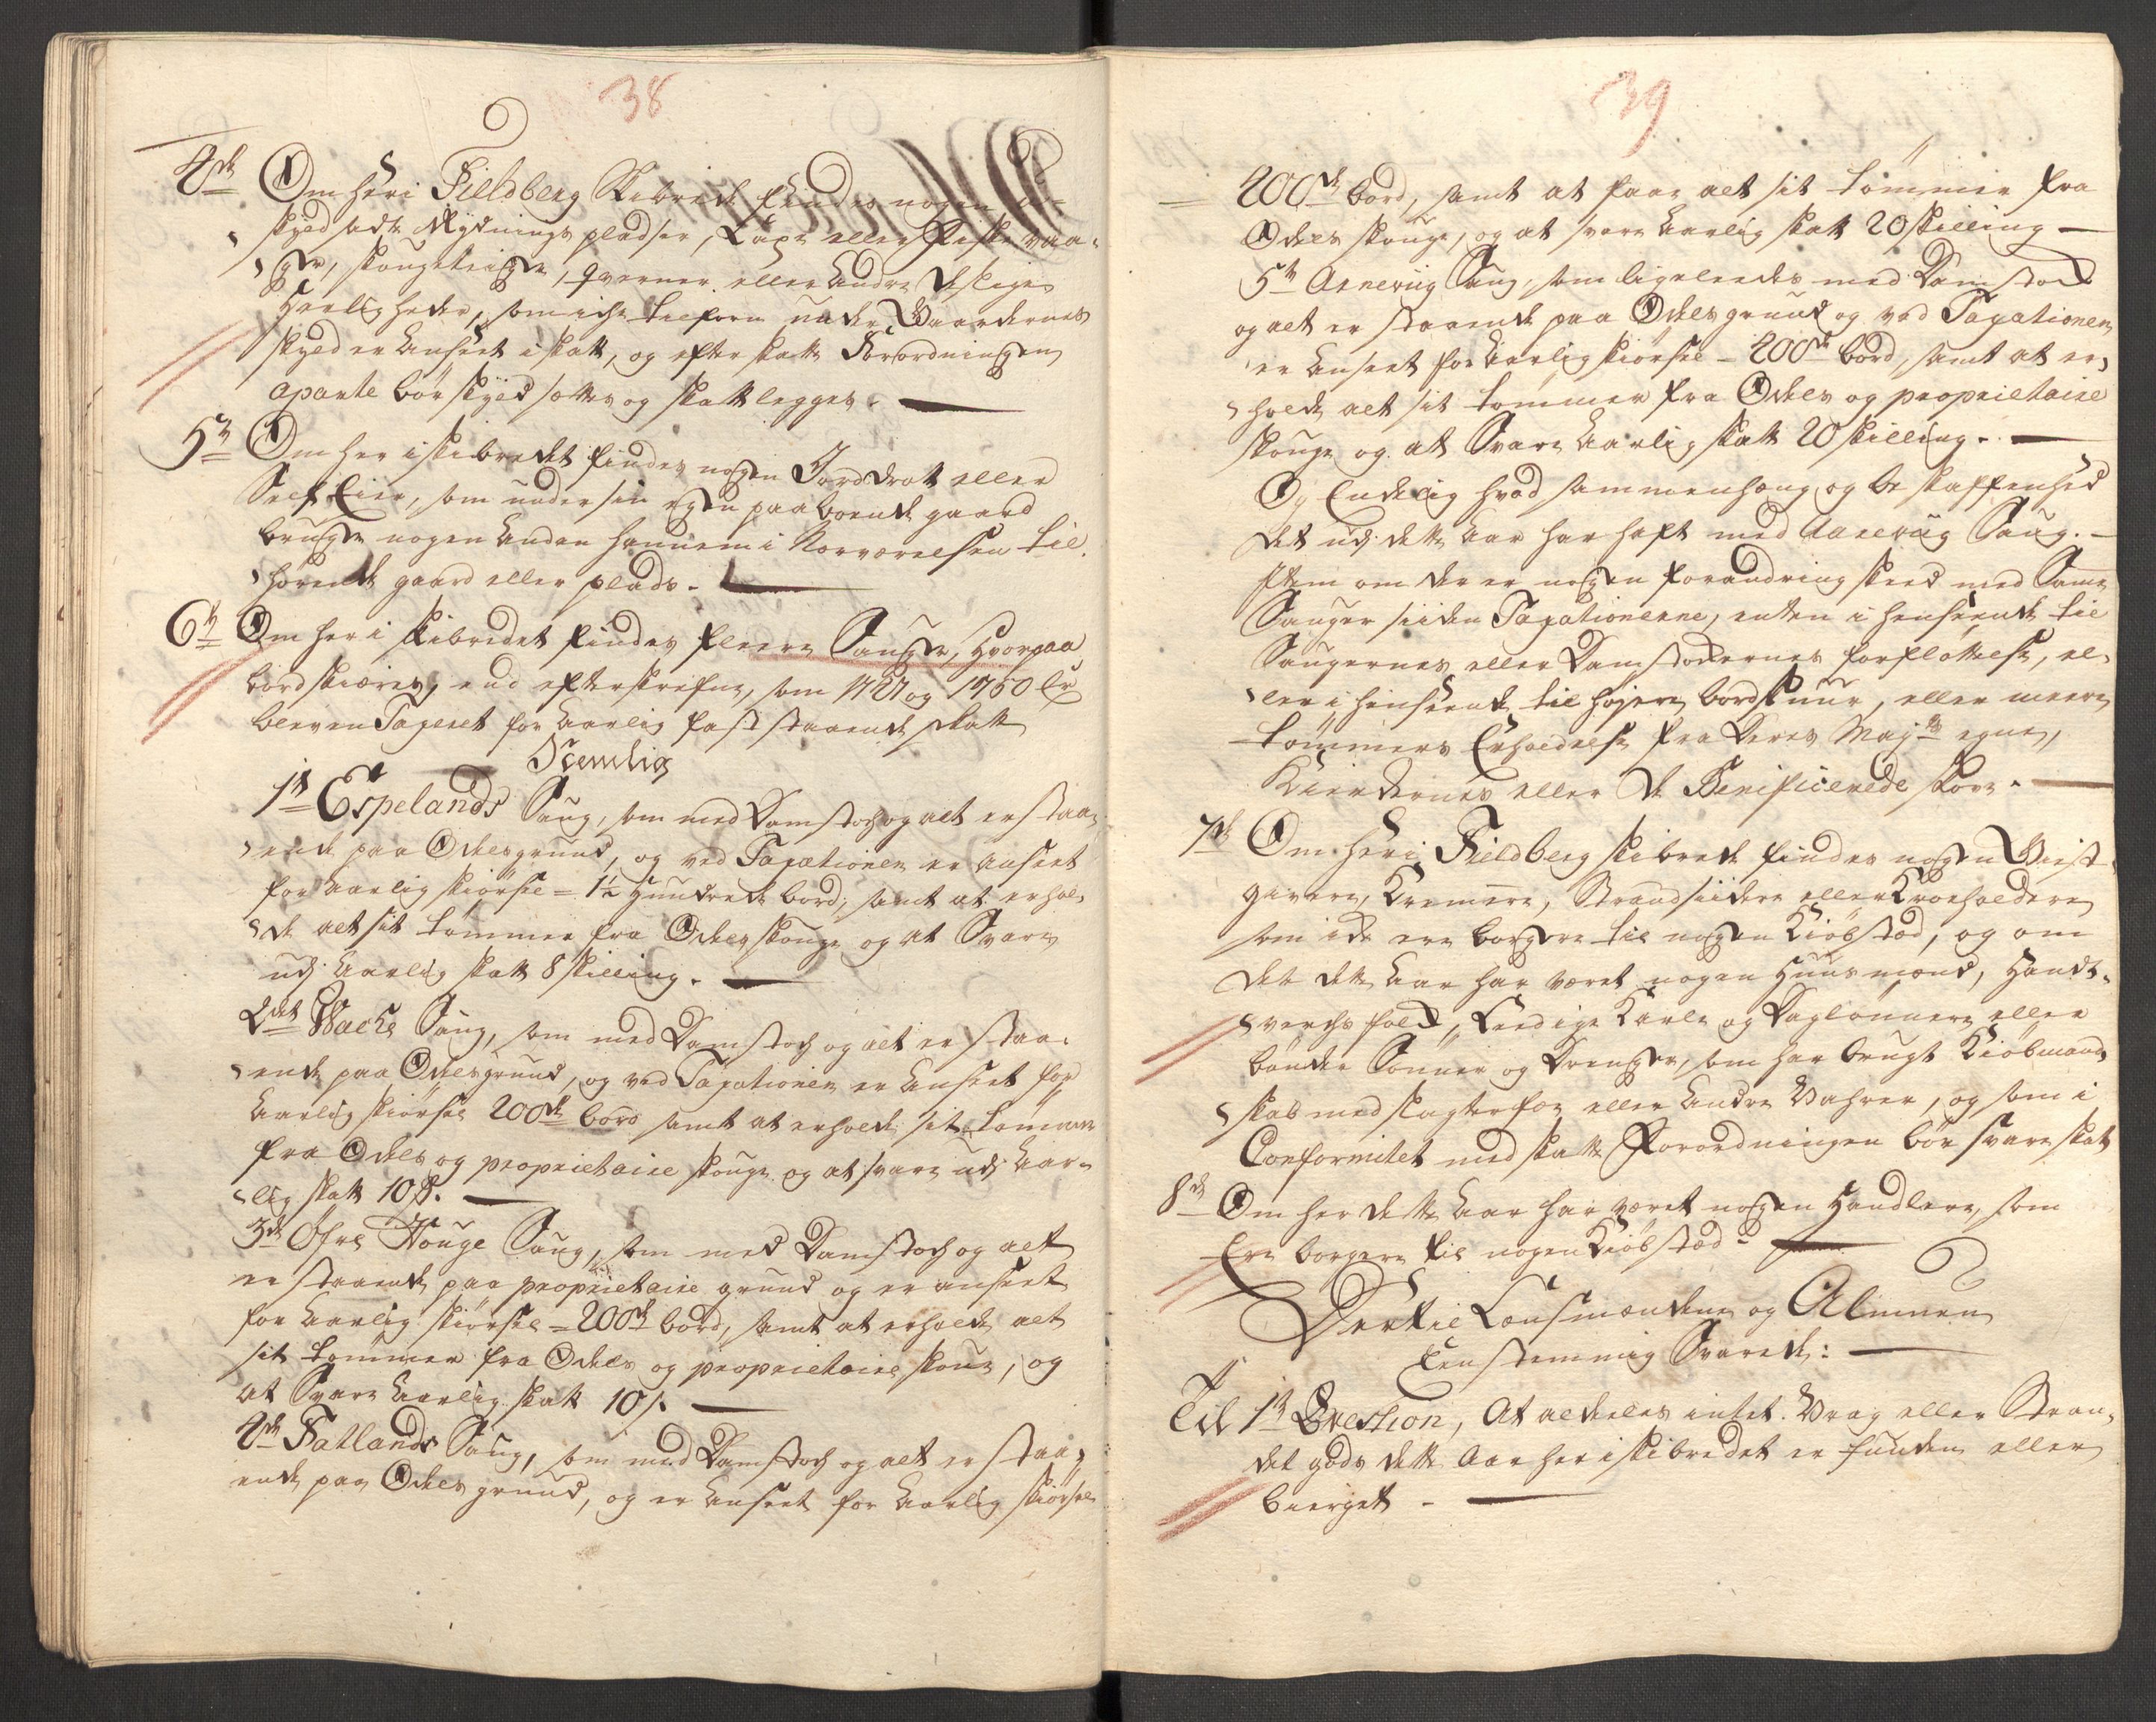 38
4de Om her i Fieldberg Skibrede findes nogen u-
skyldsadte Rydnings pladser, Laxe eller Fiske vaa-
ger, skougeteiger, qverner eller andre deslige
Herligheder, som iche tilforn under Gaardernes
skyld er anseet i skatt, og efter skatte Forordningen
aparte bør skyldsættes og skattlegges.
5te Om her i skibredet findes nogen Jorddrott eller
Self Eier, som under sin egen paaboende gaard
bruger nogen anden hannem i Nærværelsen til-
hørende gaard eller plads.
6te Om her i skibredet findes fleere Sauger, hvorpaa
bord skiæres, end efterskrefne, som 1727 og 1750 er
bleven Taxeret for aarlig faststaaende skatt
Nemlig
1te Espelands Saug, som med Damstoch og alt er staa-
ende paa Odelsgrund, og ved Taxationen er anseet
for aarlig skiørsel = 1½ Hundrede bord, samt at erhol-
de alt sit tømmer fra Odels skouge og at Svare
udj aarlig skatt 8 skilling.
2det Wachs Saug, som med Damstoch og alt er staa-
ende paa Odelsgrund, og ved Taxationen er anseet for
aarlig skiørsel 200de bord samt at erholde sit tømmer
fra Odels og proprietaire skouge og at svare udj aar-
lig skatt 10 s.
3de Øfre Houge Saug, som med Damstoch og alt
er staaende paa proprietaire grund og er anseet
for aarlig skiørsel = 200de bord, samt at erholde alt
sit tømmer fra Odels og proprietaire skoue, og
at Svare aarlig skatt 10 s.
4de Fatlands Saug, som med Damstoch og alt er staa-
ende paa Odels grund, og er anseet for aarlig skiørsel
39
400de bord, samt at faae alt sit tømmer fra
Odels skouge, og at svare aarlig skatt 20 skilling
5te Aarevig Saug, som ligeleedes med Damstoch
og alt er staaende paa Odels grund og ved Taxationen
er anseet for aarlig skiørsel - 400de bord, samt at er-
holde alt sit tømmer fra Odels og proprietaire
skouge og at Svare aarlig skatt 20 skilling.
Og Endelig hvad sammenhæng og beskaffenhed
det udj dette aar har haft med Aarevig Saug.
Item om der er nogen forandring skeed med Samme
Sauger siiden Taxationerne, enten i henseende til
Saugernes eller Damstochernes forfløttelse, el-
ler i henseende til høyere bordskuur, eller meere
tømmers Erholdelse fra Deres Maj:ts egne,
Kierchernes eller De Benificerede skove.
7de Om her i Fieldberg skibrede findes nogen Giest-
givere, Kremere, Strandsiidere eller Kroeholdere
som icke ere borgere til nogen Kiøbstæd, og om
det dette aar har været nogen Huusmænd, Handt-
verchs folch, Leedige Karle og Daglønnere eller
bønder Sønner og Drenger, som har brugt Kiøbmand-
skab med slagterfæe eller andre Vahrer, og som i
Conformitet med skatte Forordningen bør svare skatt
8de Om her dette aar har været nogen Handlere, som
Ere borgere til nogen Kiøbstæd?
Dertil Lensmændene og Almuen
Eenstemmig Svarede:
Til 1te Qvestion, At aldeeles intet Vrag eller Stran-
det gods dette Aar her i skibredet er funden eller
bierget